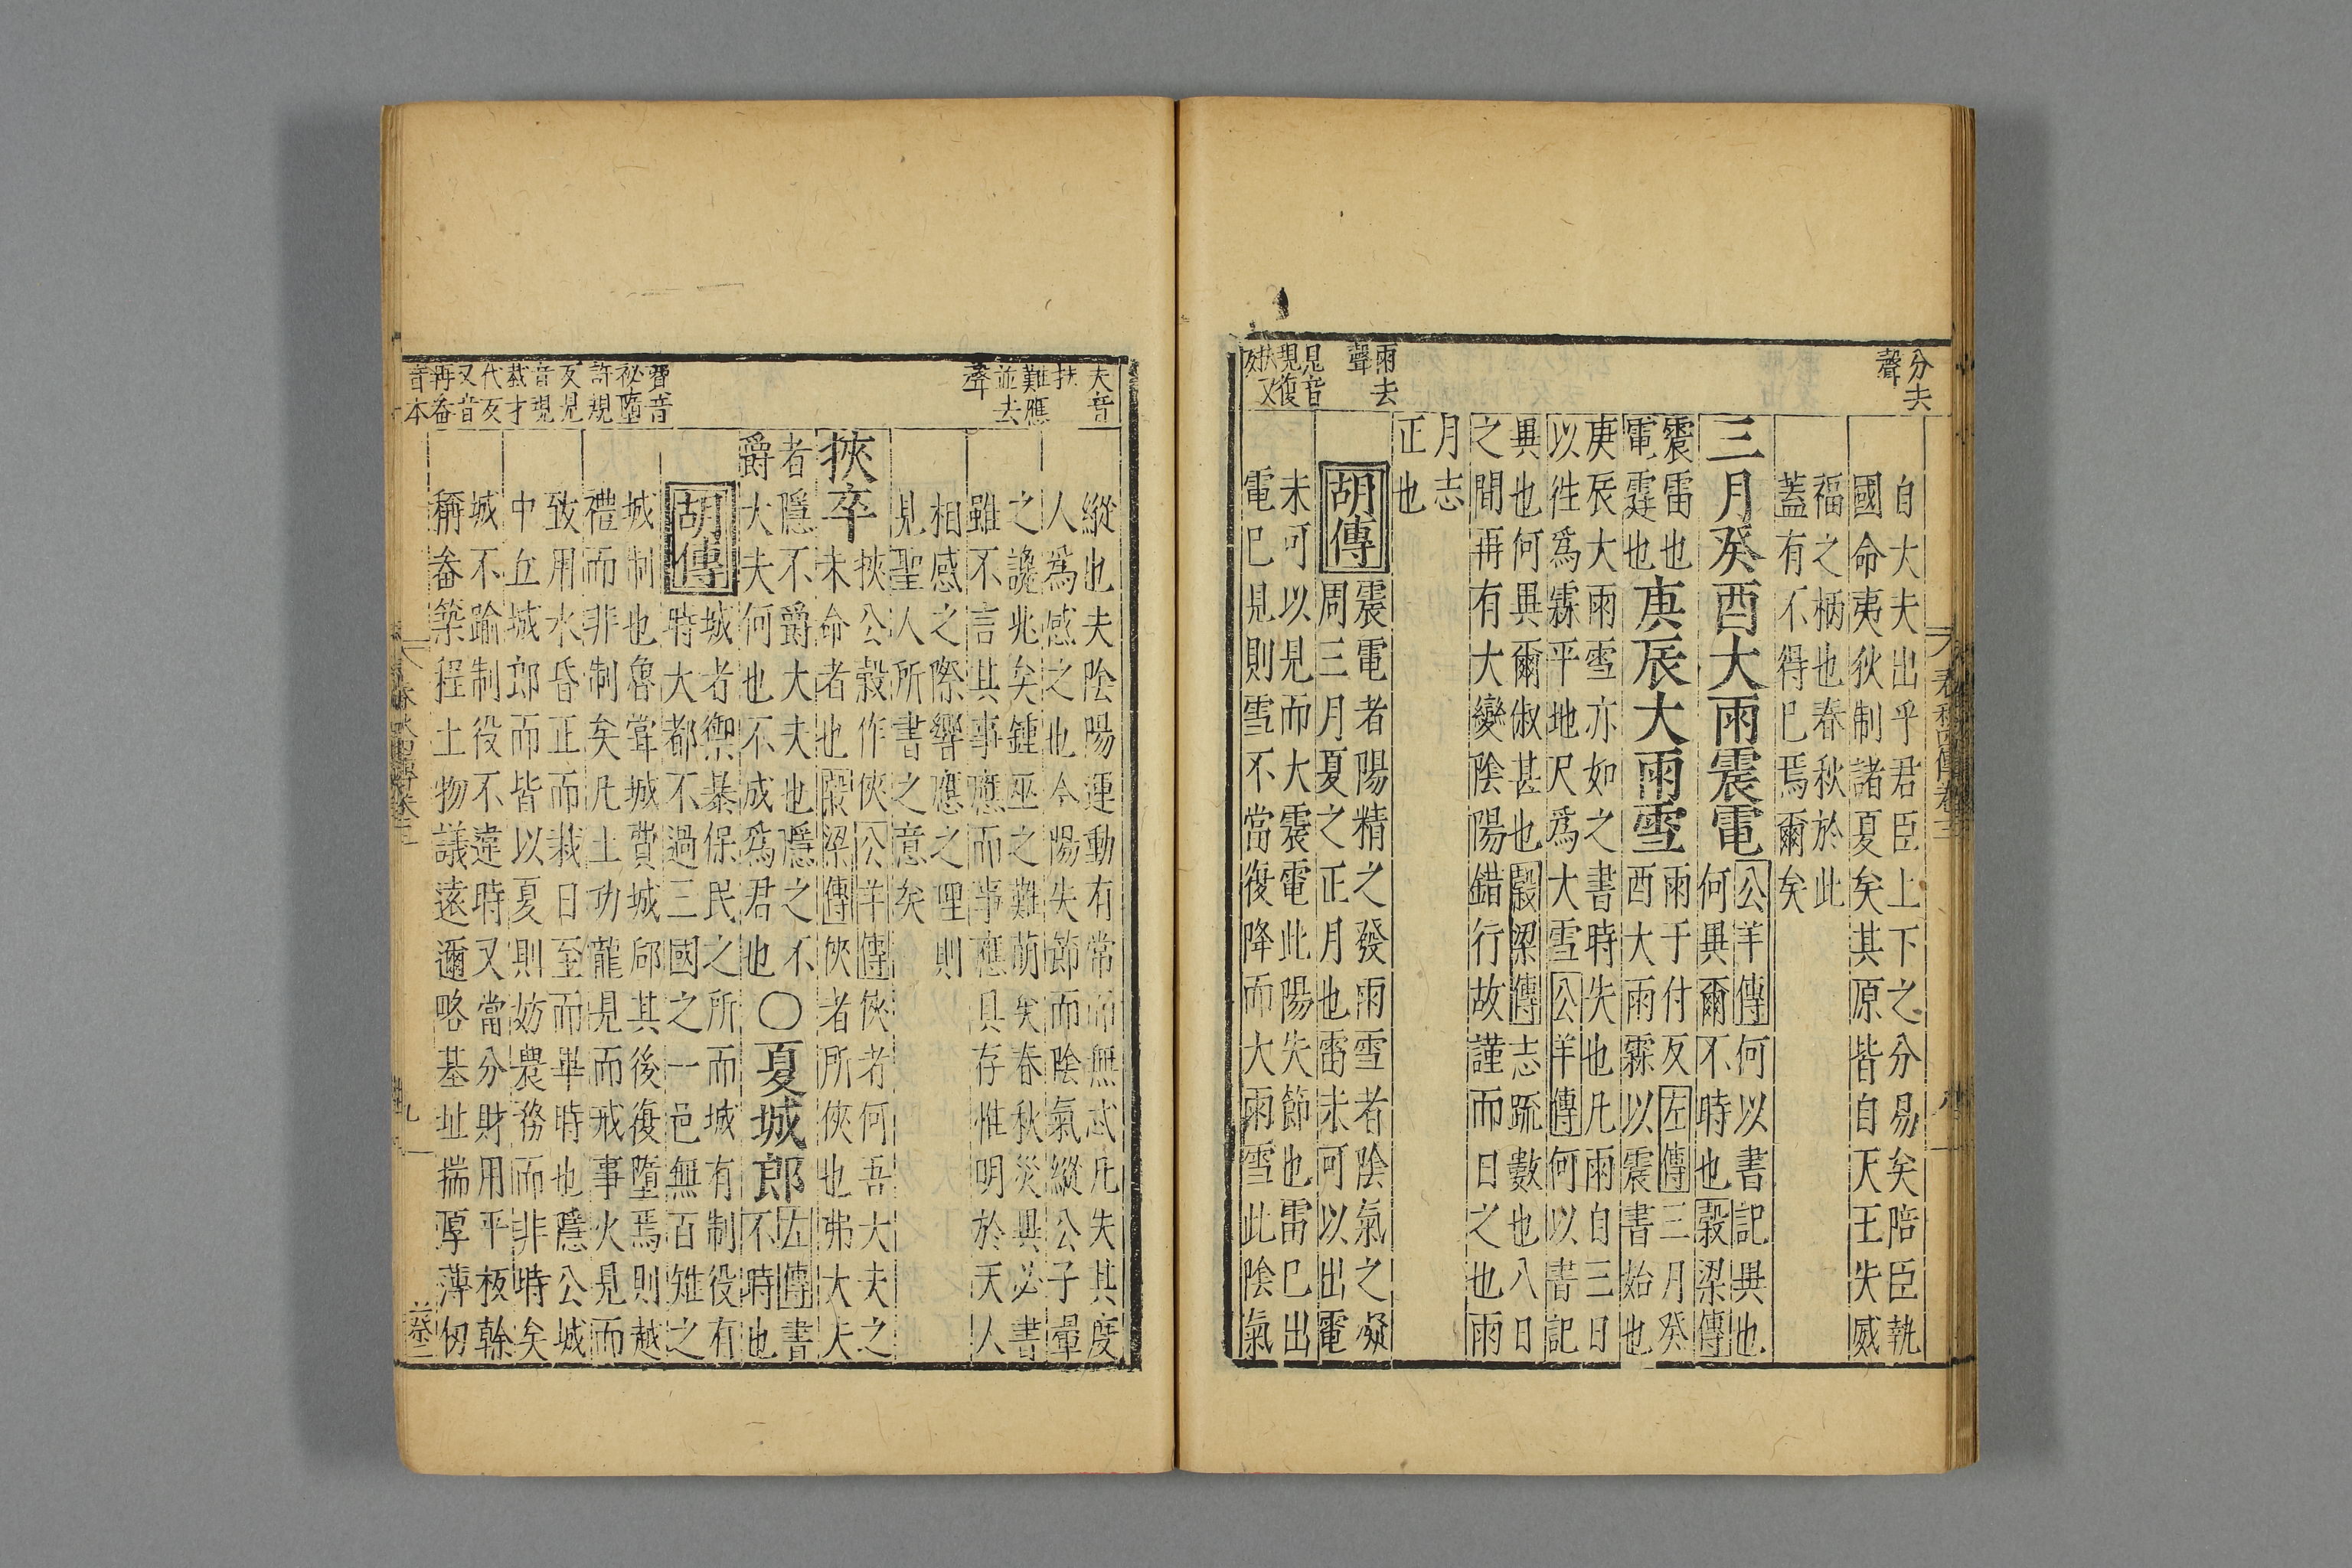 分去
聲
自大夫出乎君臣上下之分易矣陪臣執
國命夷狄制諸夏矣其原皆自天王失威
福之柄也春秋於此
蓋有不得已焉爾矣
三月癸酉大雨震電
公羊傳何以書記異也
何異爾不時也穀梁傳
震雷也
電霆也
庚辰大雨雪
雨于付反左傳三月癸
酉大雨霖以震書始也
庚辰大雨雪亦如之書時失也凡雨自三日
以徃爲霖平地尺爲大雪公羊傳何以書記
異也何異爾俶甚也穀梁傳志疏數也八日
之間再有大變陰陽錯行故謹而日之也雨
月志
正也
雨去
聲
胡傳
震電者陽精之發雨雪者陰氣之凝
周三月夏之正月也雷未可以出電
見音
現復
扶又
反
未可以見而大震電此陽失節也雷已出
電已見則雪不當復降而大雨雪此陰氣
夫音
扶
難應
並去
聲
縱也夫陰陽運動有常而無忒凡失其度
人爲感之也今陽失節而陰氣縱公子翬
之讒兆矣鍾巫之難萌矣春秋災異必書
雖不言其事應而事應具存惟明於天人
相感之際響應之理則
見聖人所書之意矣
挾卒
挾公穀作俠公羊傳俠者何吾大夫之
未命者也穀梁傳俠者所俠也弗大夫
者隱不爵大夫也隱之不
爵大夫何也不成爲君也
○夏城郎
左傳書
不時也
費音
祕墮
許規
反見
音現
栽才
代反
又音
再畚
音本
胡傳
城者禦暴保民之所而城有制役有
時大都不過三國之一邑無百雉之
城制也魯嘗城費城郈其後復墮焉則越
禮而非制矣凡土功龍見而戒事火見而
致用水昏正而栽日至而畢時也隱公城
中丘城郎而皆以夏則妨農務而非時矣
城不踰制役不違時又當分財用平板榦
稱畚築程土物議遠邇略基址揣厚薄仞